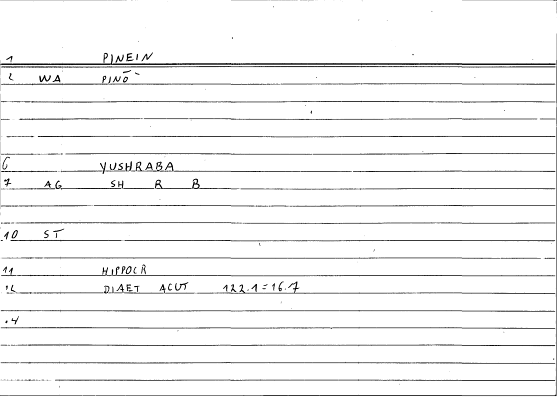 1 PINEIN
2 WA PINŌ
6 YUSHRABA
7 AG SH R B
10 ST
11 HIPPOCR
12 DIAET ACUT 122.1=16.7
14